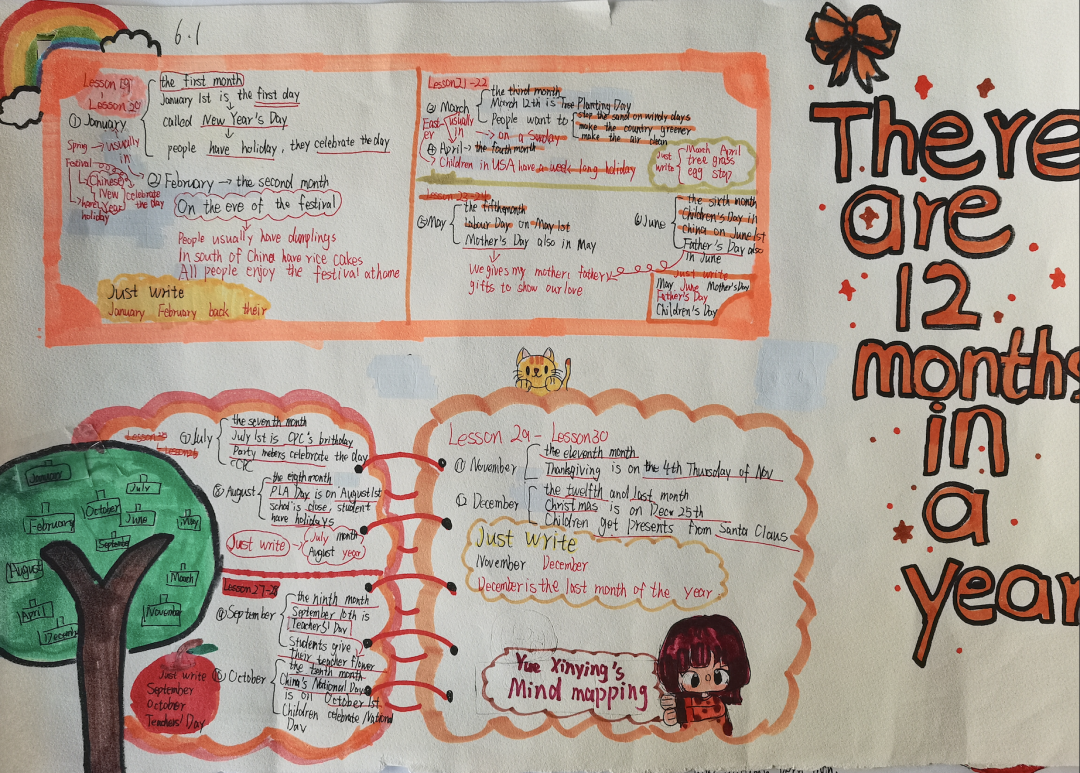 6.1
Lesson 19-
Lesson 20
① January
the first month
January 1st is the first day
called New Year's Day
people have holiday, they celebrate the day
Spring → usually
in
Festival
Chinese
New
Year
celebrate
the day
have
holiday
② February → the second month
On the eve of the festival
People usually have dumplings
In south of China have rice cakes
All people enjoy the festival at home
Just write
January February back their
Lesson 21-22
③ March
the third month
March 12th is Tree Planting Day
People want to
stop the sand on windy days
make the country greener
make the air clean
East-
er
usually
in
→ on a Sunday
④ April → the fourth month
Children in USA have a week-long holiday
Just
write
March April
tree grass
egg stop
Lesson 23-24
⑤ May
the fifth month
Labour Day on May 1st
Mother's Day also in May
We gives my mother, father
gifts to show our love
⑥ June
the sixth month
Children's Day in
China on June 1st
Father's Day also
in June
Just write
May June Mother's Day
Father's Day
Children's Day
There
are
12
months
in
a
year
Lesson 25
Lesson 26
⑦ July
the seventh month
July 1st is CPC's brithday
Party mebers celebrate the day
CCPC
⑧ August
the eigth month
PLA Day is on August 1st
school is close, student
have holidays
Just write
July month
August year
Lesson 27-28
⑨ September
the ninth month
September 10th is
Teachers' Day
Students give
Their teacher flower
⑩ October
the tenth month
China's National Day
is on October 1st
Children celebrate National
Day
Just write
September
October
Teachers' Day
January
July
October
February
June
May
September
August
March
April
November
December
Lesson 29 - Lesson 30
⑪ November
the eleventh month
Thanksgiving is on the 4th Thursday of Nov
December
the twelfth and last month
Christmas is on Dec 25th
Children got presents from Santa Claus
Just write
November December
December is the last month of the year.
Yue Xinying's
Mind mapping